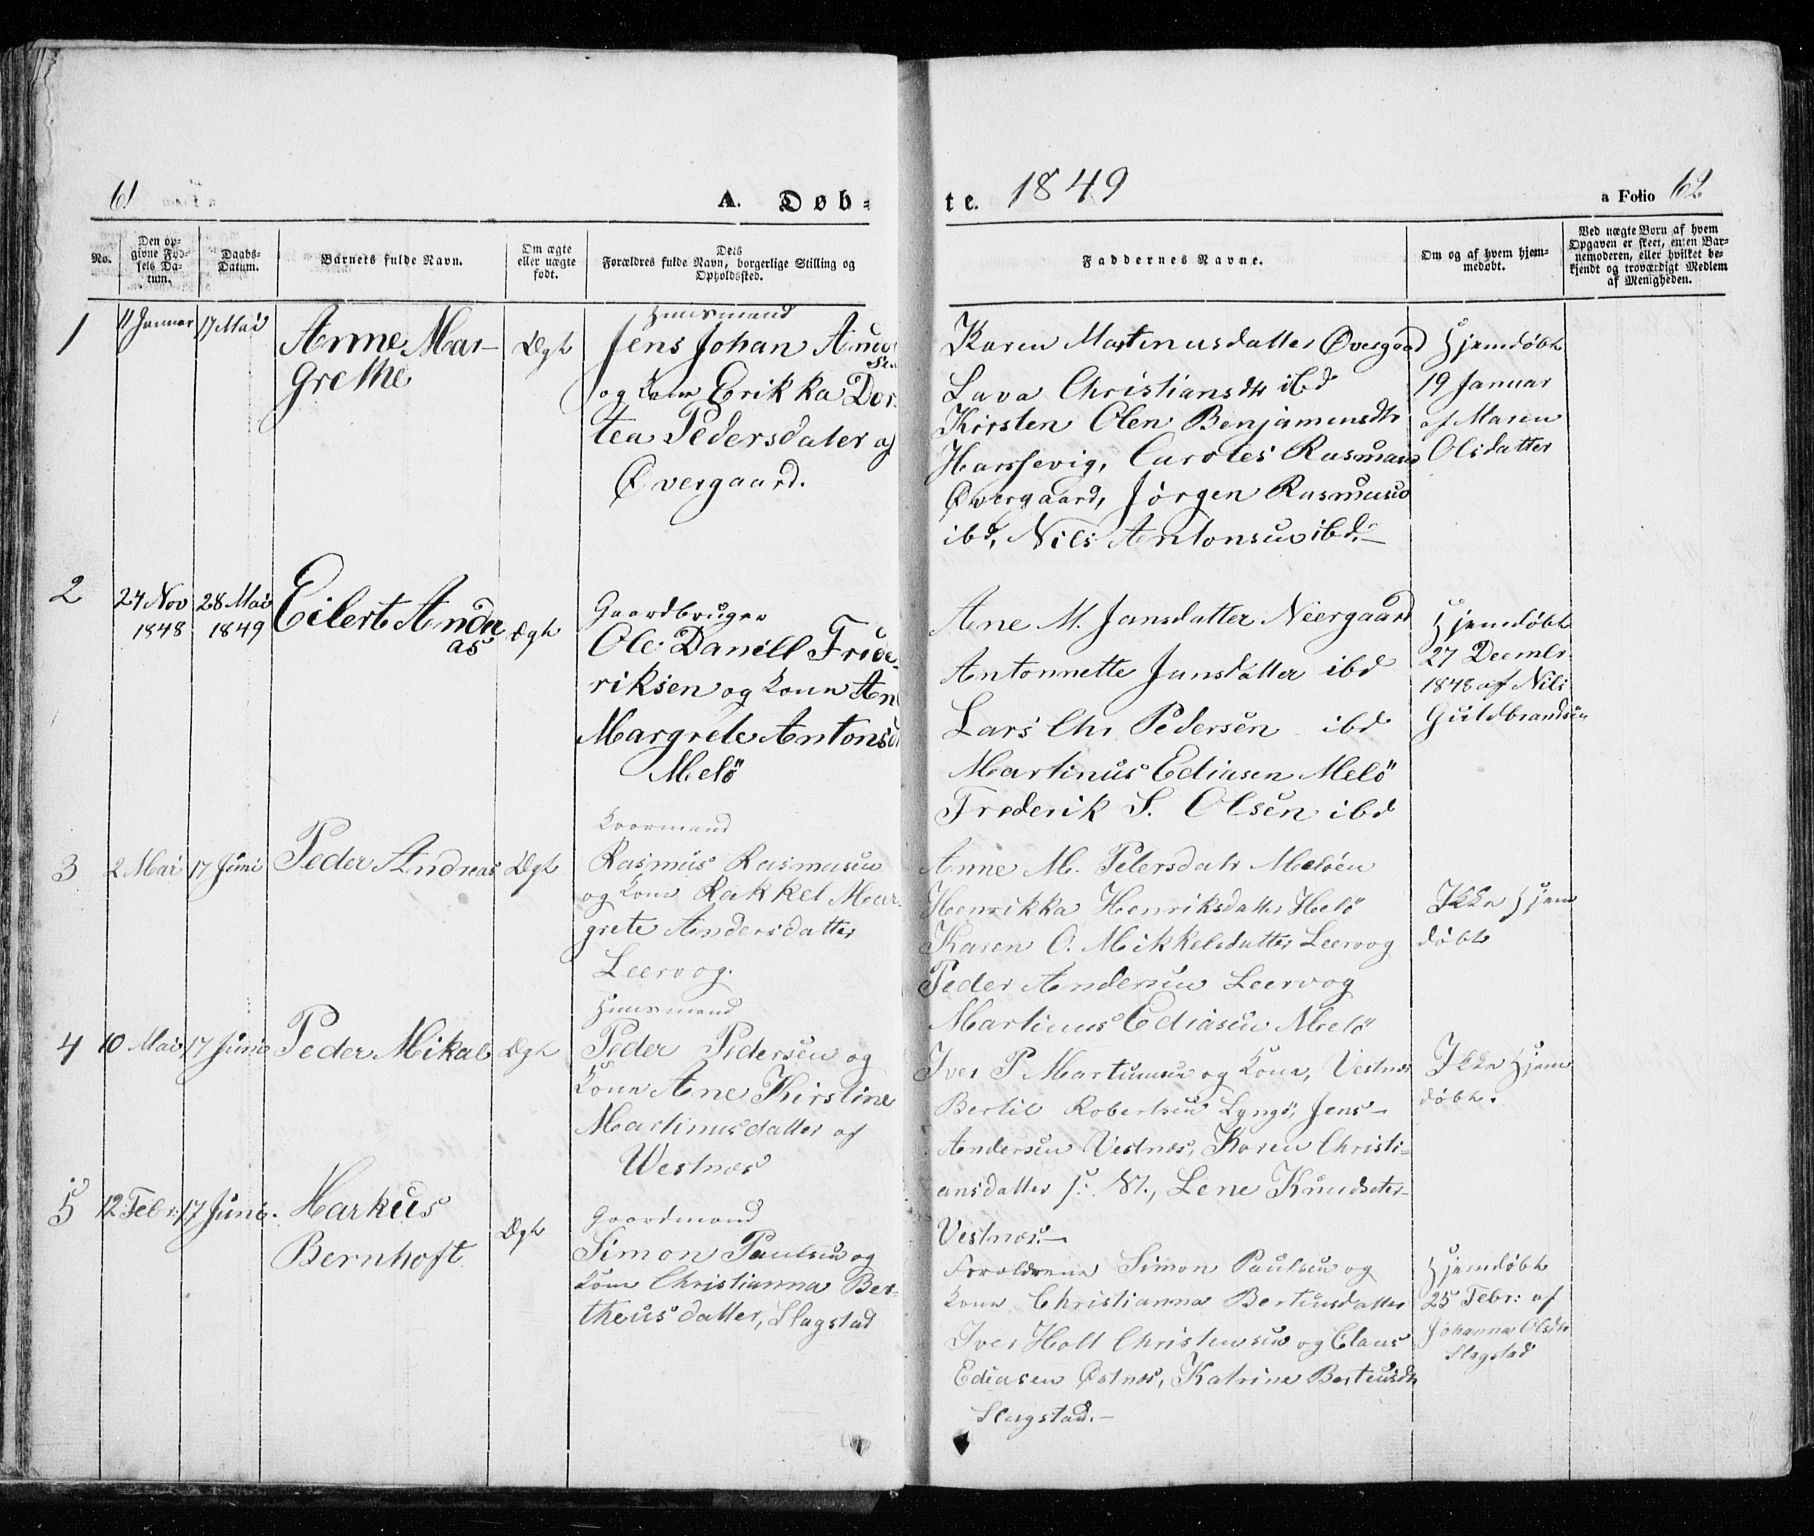 61
A. Døb-
te. 1849
a Folio 62
No.
Den op-
givne Fød-
sels Da-
tum.
Daabs-
Datum.
Barnets fulde Navn.
Om ægte
eller uægte
født.
Dets
Forældres fulde Navn, borgerlige Stilling og
Opholdssted.
Faddernes Navne.
Om og af hvem hjem-
medøbt.
Ved uægte Børn af hvem
Opgaven er skeet, enten Bar-
nemoderen, eller hvilket be-
kjendt og troværdigt Medlem
af Menigheden.
1
11 Januar
17 Mai
Anne Mar-
grethe
Ægte
Huusmand
Jens Johan
og Kone Erikka Dor-
tea Pedersdater af
Øvergaard.
Karen Martinusdatter Øvergaard
Lava Christiansdtr ibd
Kirsten Olen Benjaminsdtr
Harsfevig, Caroles Rasmusen
Øvergaard, Jørgen Rasmusen
ibd, Nils Antonsen ibd.
Hjemdøbt
19 Januar
af Maren
Olsdatter
2
24 Nov
1848
28 Mai
1849
Eilert Andre
as
Ægte
Gaardbruger
Ole Daniell Fride-
riksen og Kone An
Margrete Antonsd
Melö
Ane M. Jansdatter Neergaard
Antonnette Jansdatter ibd
Lars Chr Pedersen ibd
Martinus Ediasen Melö
Frederik S. Olsen ibd
Hjemdøbt
27 Decembr.
1848 af Nils
Guldbrandsen
3
2 Mai
17 Juni
Peder Andreas
Ægte
Rasmus Rasmusen
og Kone Rakkel Mar-
grete Andersdatter
Leervog.
Anne M. Petersdatr Meløen
Henrikka Henriksdatter Melø
Karen O. Mikkelsdatter Leervog
Peder Andersen Leervog
Martinus Ediasen Melø
Ikke Hjem
døbt
4
10 Mai
17 Juni
Peder Mikal
Ægte
Huusmand
Peder Pedersen og
Kone Ane Kirstine
Martinusdatter af
Westnæs
Iver P Martinusen og Kone, Vestnæs
Bertil Robertsen Lyngö, Jens
Andersen Vestnæs, Karen Christi-
ansdatter s. St., Lene Knudsdter
Vestnæs.
Ikke Hjem
døbt.
5
12 Febr:
17 Juni.
Markus
Bernhoft
Ægte
Gaardmand
Simon Paulsen og
Kone Christianna Ber-
theusdatter, Slagstad
Forældrene Simon Paulsen og
Kone Christianna Berteusdatter
Iver Holt Christensen og Claus
Ediasen Østnæs, Katrine Berteusdtr
Slagstad.
Hjemdøbt
25 Febr: af
Johanna Olsdtr
Slagstad